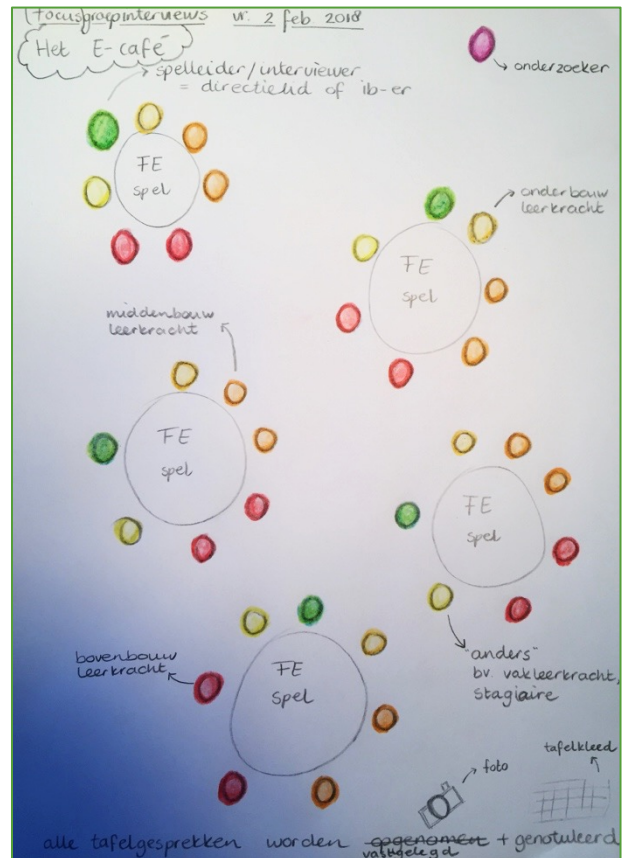 focusgroepinterviews vr. 2 feb 2018
Het E-café
spelleider/interviewer
= directielid of ib-er
onderzoeker
FE
spel
onderbouw
leerkracht
FE
spel
middenbouw
leerkracht
FE
spel
FE
spel
"anders"
bv. vakleerkracht,
stagiaire
bovenbouw
leerkracht
FE
spel
foto
tafelkleed
alle tafelgesprekken worden opgenomen + genotuleerd
vastgelegd